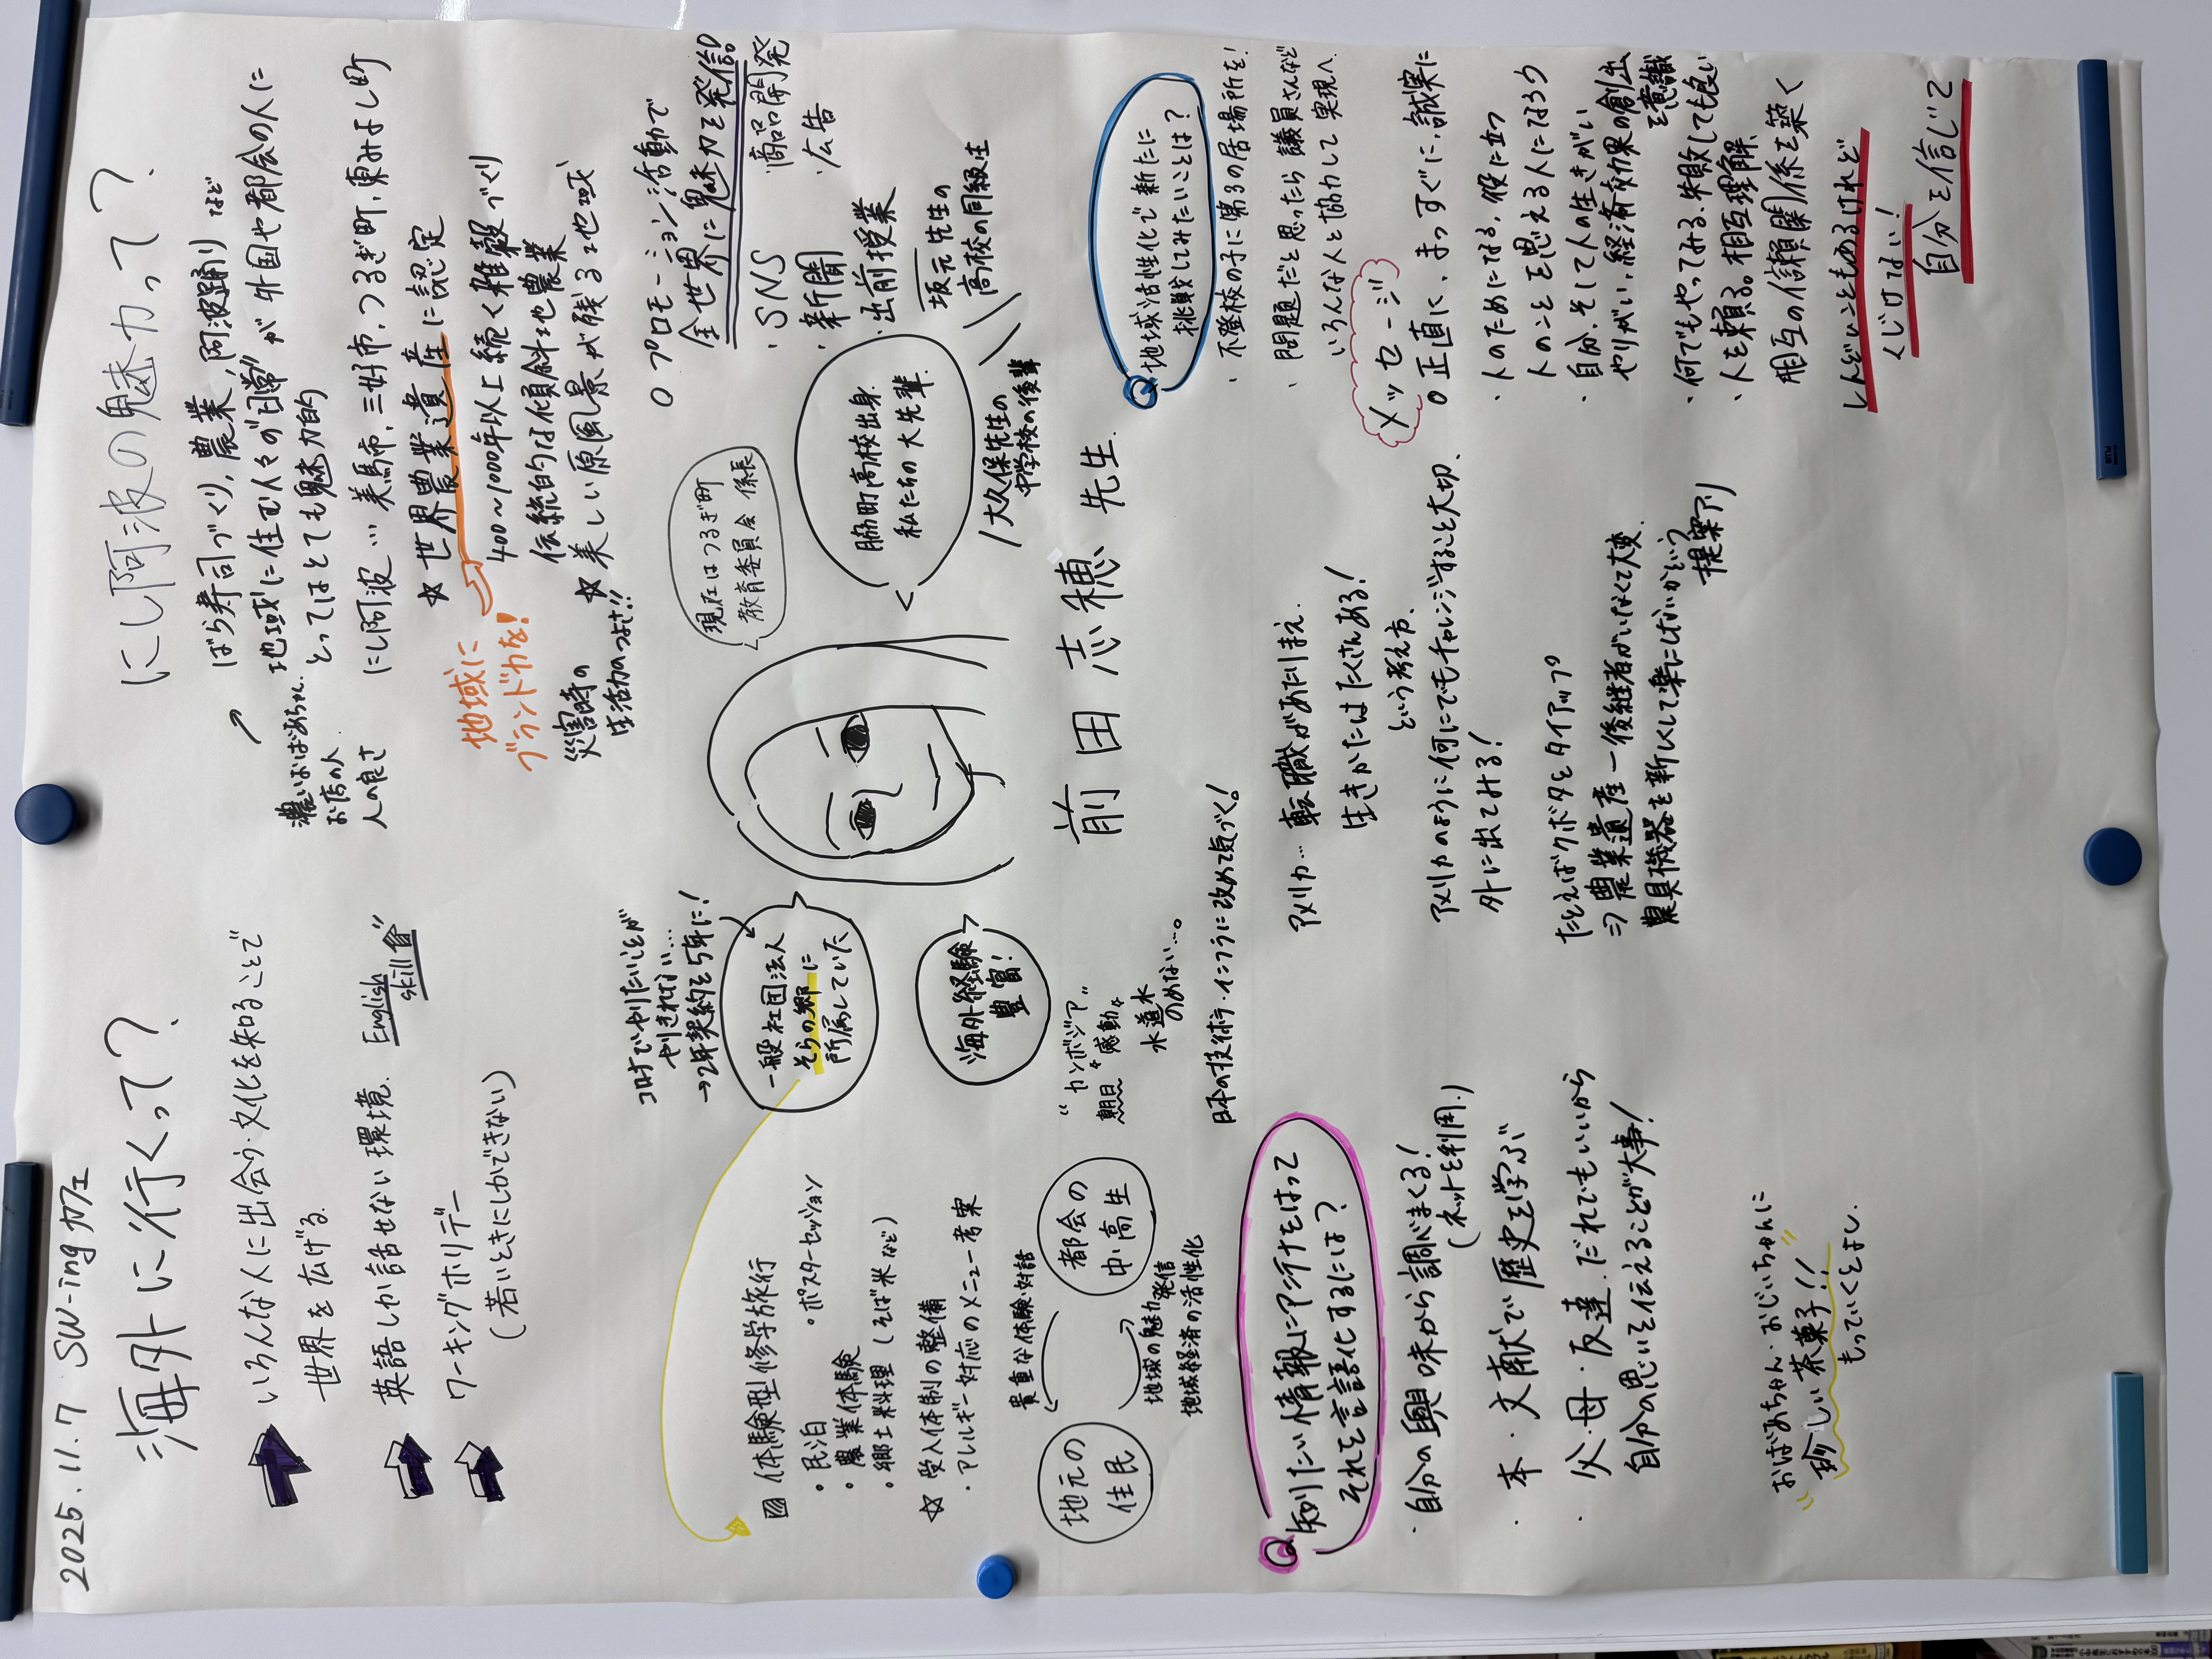 2025.11.7 SW-ing カフェ
海外に行くって？
いろんな人に出会う・文化を知ることで
世界を広げる。
英語しか話せない環境．
English
skill
ワーキングホリデー
(若いときにしかできない)
にし阿波の魅力って？
ばら寿司づくり，農業，阿波踊り など
地域に住む人々の"日常"が外国や都会の人に
とってはとても魅力的
濃いおばあちゃん．
お店の人．
人の良さ
にし阿波… 美馬市，三好市，つるぎ町，東みよし町
☆世界農業遺産に認定
400～1000年以上続く雑穀づくり
伝統的な傾斜地農業
☆美しい原風景が残る地域
地域に
ブランド力を！
災害時の
生活力のつよさ!!
コロナでやりたいことが
やりきれない…
→2年契約を5年に！
一般社団法人
そらの郷に
所属していた
海外経験
豊富！
"カンボジア"
朝日 "感動"
水道水
のめない…。
日本の技術・インフラに改めて気づく！
体験型修学旅行
・民泊
・ポスターセッション
・農業体験
・郷土料理 (そば米など)
☆受入体制の整備
・アレルギー対応のメニュー考案
貴重な体験・対話
地元の
住民
都会の
中・高生
地域の魅力発信
地域経済の活性化
現在はつるぎ町
教育委員会 係長
脇町高校出身
私たちの大先輩．
大久保先生の
中学校の後輩
坂元先生の
高校の同級生
前田 志穂 先生
○プロモーション活動で
全世界に魅力を発信！
・SNS
・新聞
・出前授業
・商品開発
・広告
Q 知りたい情報にアンテナをはって
それを言語化するには？
・自分の興味から調べまくる！
(ネットを利用．)
・本・文献で歴史を学ぶ
・父・母・友達．だれでもいいから
自分の思いを伝えることが大事！
"おばあちゃん・おじいちゃんに"
珍しい茶菓子!!
もっていくとよし．
アメリカ… 転職があたりまえ．
生きかたはたくさんある！
という考え方．
アメリカのように何にでもチャレンジすること大切．
外に出てみる！
たとえばクボタとタイアップ
⇒農業遺産―後継者がいなくて大変．
農具機器を新しくして楽にしないかという
提案アリ
Q 地域活性化で新たに
挑戦してみたいことは？
・不登校の子に第3の居場所を！
・問題だと思ったら議員さんなど
いろんな人と協力して実現へ
メッセージ
○正直に、まっすぐに、誠実に
・人のためになる，役に立つ
人のことを思える人になろう
・自分、そして人の生きがい
やりがい，経済効果の創出
を意識
・何でもやってみる、失敗しても良い
・人を頼る。相互理解
相互の信頼関係を築く
しんどいこともあるけれど
くじけない！
自分を信じて